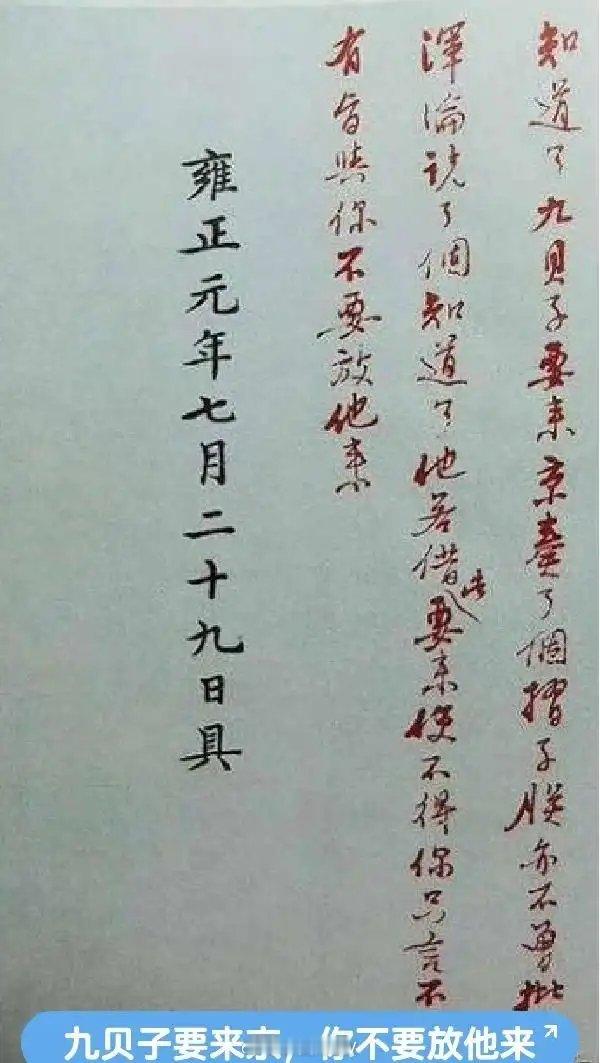 知道了九贝子要来京奏了個摺子朕亦不曾批
渾淪説了個知道了他若借此要来使不得你只言不
有旨與你不要放他来
雍正元年七月二十九日具
九贝子要来京，你不要放他来